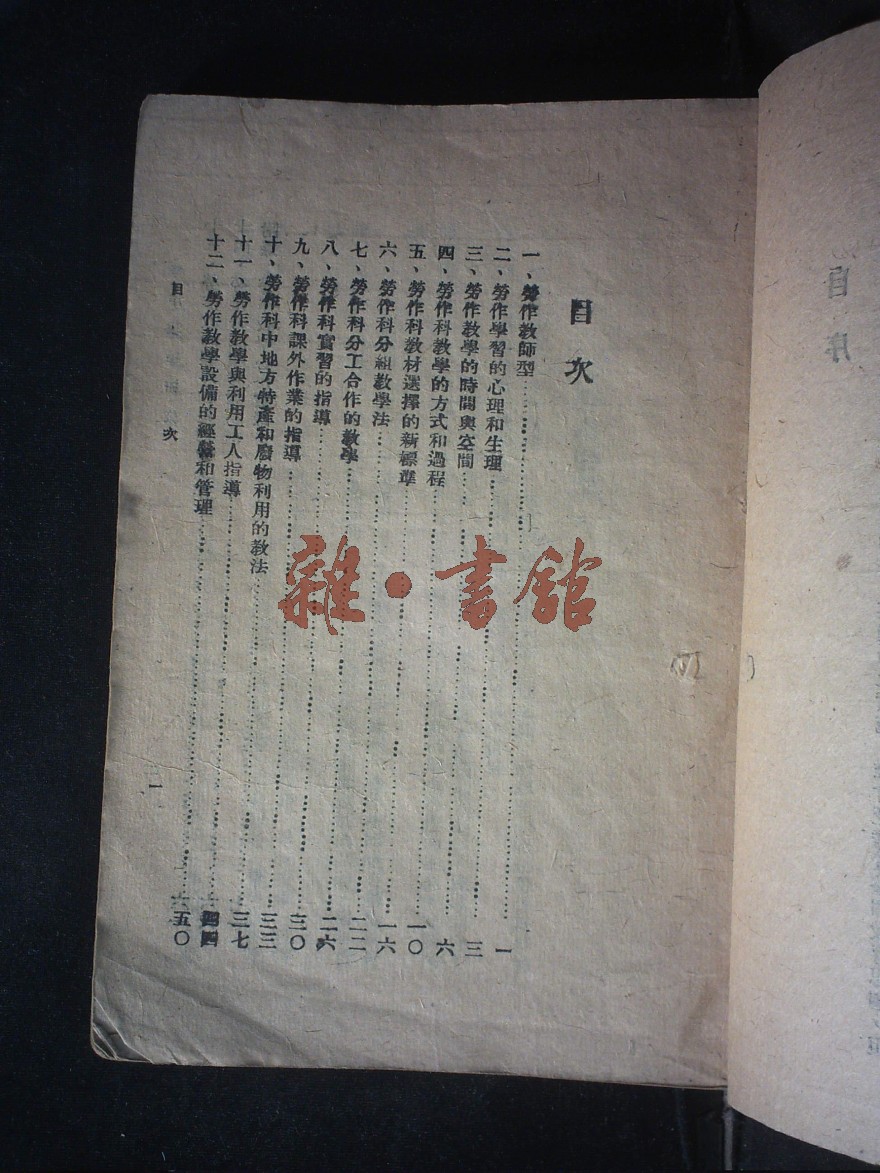 自序
目次
一、勞作教師型……一
二、勞作學習的心理和生理……三
三、勞作教學的時間與空間……六
四、勞作科教學的方式和過程……一〇
五、勞作科教材選擇的新標準……一六
六、勞作科分組教學法……二二
七、勞作科分工合作的教學……二六
八、勞作科實習的指導……三〇
九、勞作科課外作業的指導……三三
十、勞作科中地方特產和廢物利用的教法……三七
十一、勞作教學與利用工人指導……四四
十二、勞作教學設備的經營和管理……五〇
目次
一
雜·書館